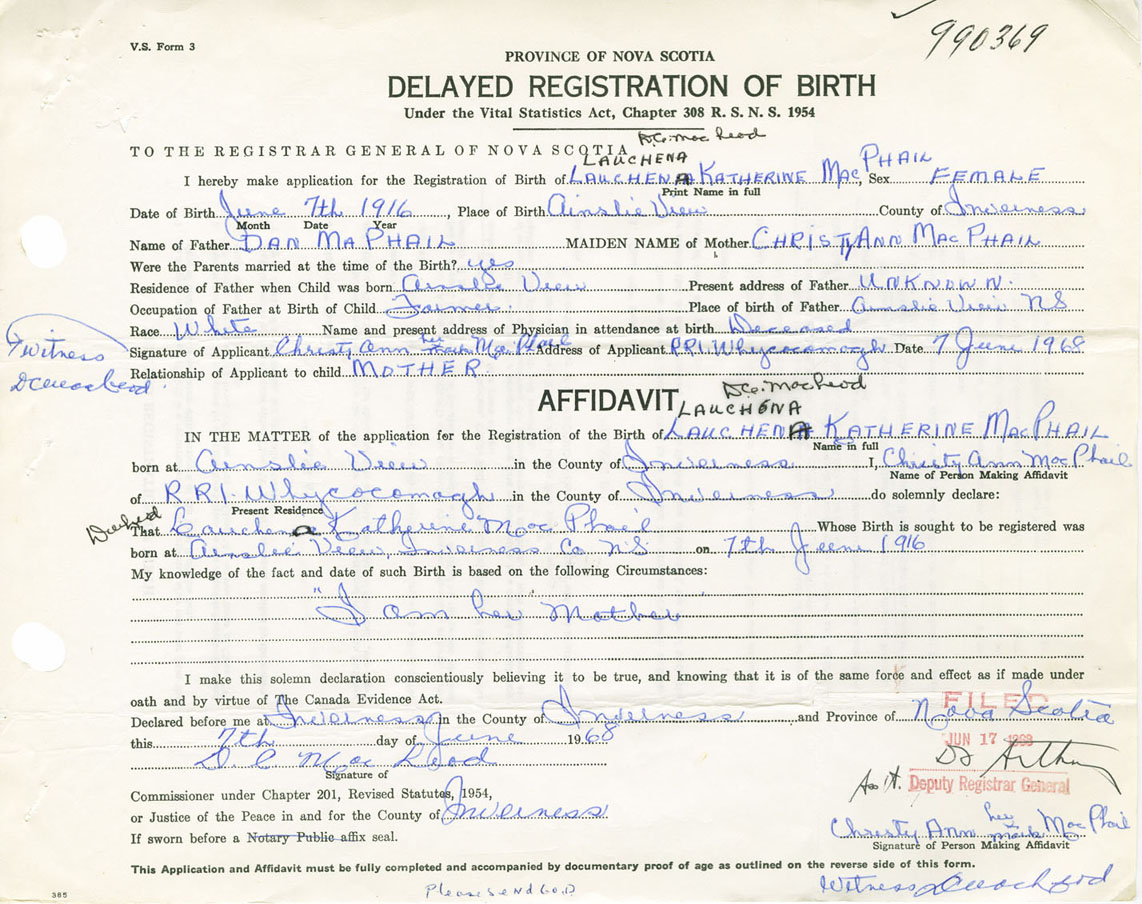 990369
V.S. Form 3
PROVINCE OF NOVA SCOTIA
DELAYED REGISTRATION OF BIRTH
Under the Vital Statistics Act, Chapter 308 R. S. N. S. 1954
D.C. MacLeod
TO THE REGISTRAR GENERAL OF NOVA SCOTIA
LAUCHENA
I hereby make application for the Registration of Birth of LAUCHENA KATHERINE MAC PHAIL, Sex FEMALE
Print Name in full
Date of Birth June 7th 1916, Place of Birth Ainslie View County of Inverness
Month Date Year
Name of Father DAN MAPHAIL MAIDEN NAME of Mother CHRISTY ANN MAC PHAIL
Were the Parents married at the time of the Birth? yes
Residence of Father when Child was born Ainslie View Present address of Father UNKNOWN.
Occupation of Father at Birth of Child Farmer. Place of birth of Father Ainslie View NS
Race White Name and present address of Physician in attendance at birth Deceased
witness
Signature of Applicant Christy Ann her mark Mac Phail Address of Applicant RR1. Whycocomagh Date 7 June 1968
DC MacLeod
Relationship of Applicant to child MOTHER
AFFIDAVIT
D.C. MacLeod
LAUCHENA
IN THE MATTER of the application for the Registration of the Birth of LAUCHENA KATHERINE MAC PHAIL
Name in full
born at Ainslie View in the County of Inverness I, Christy Ann Mac Phail
Name of Person Making Affidavit
of RR1. Whycocomagh in the County of Inverness do solemnly declare:
Present Residence
That Lauchena Katherine Mac Phail Whose Birth is sought to be registered was
born at Ainslie View, Inverness Co NS on 7th June 1916
My knowledge of the fact and date of such Birth is based on the following Circumstances:
"I am her Mother"
I make this solemn declaration conscientiously believing it to be true, and knowing that it is of the same force and effect as if made under
oath and by virtue of The Canada Evidence Act.
FILED
Declared before me at Inverness in the County of Inverness and Province of Nova Scotia
this 7th day of June 1968
JUN 17 1968
D C Mac Leod
Signature of
Asst. Deputy Registrar General
Commissioner under Chapter 201, Revised Statutes, 1954,
or Justice of the Peace in and for the County of Inverness
Christy Ann her mark Mac Phail
If sworn before a Notary Public affix seal.
Signature of Person Making Affidavit
This Application and Affidavit must be fully completed and accompanied by documentary proof of age as outlined on the reverse side of this form.
Witness DC MacLeod
385
Please send C.O.D